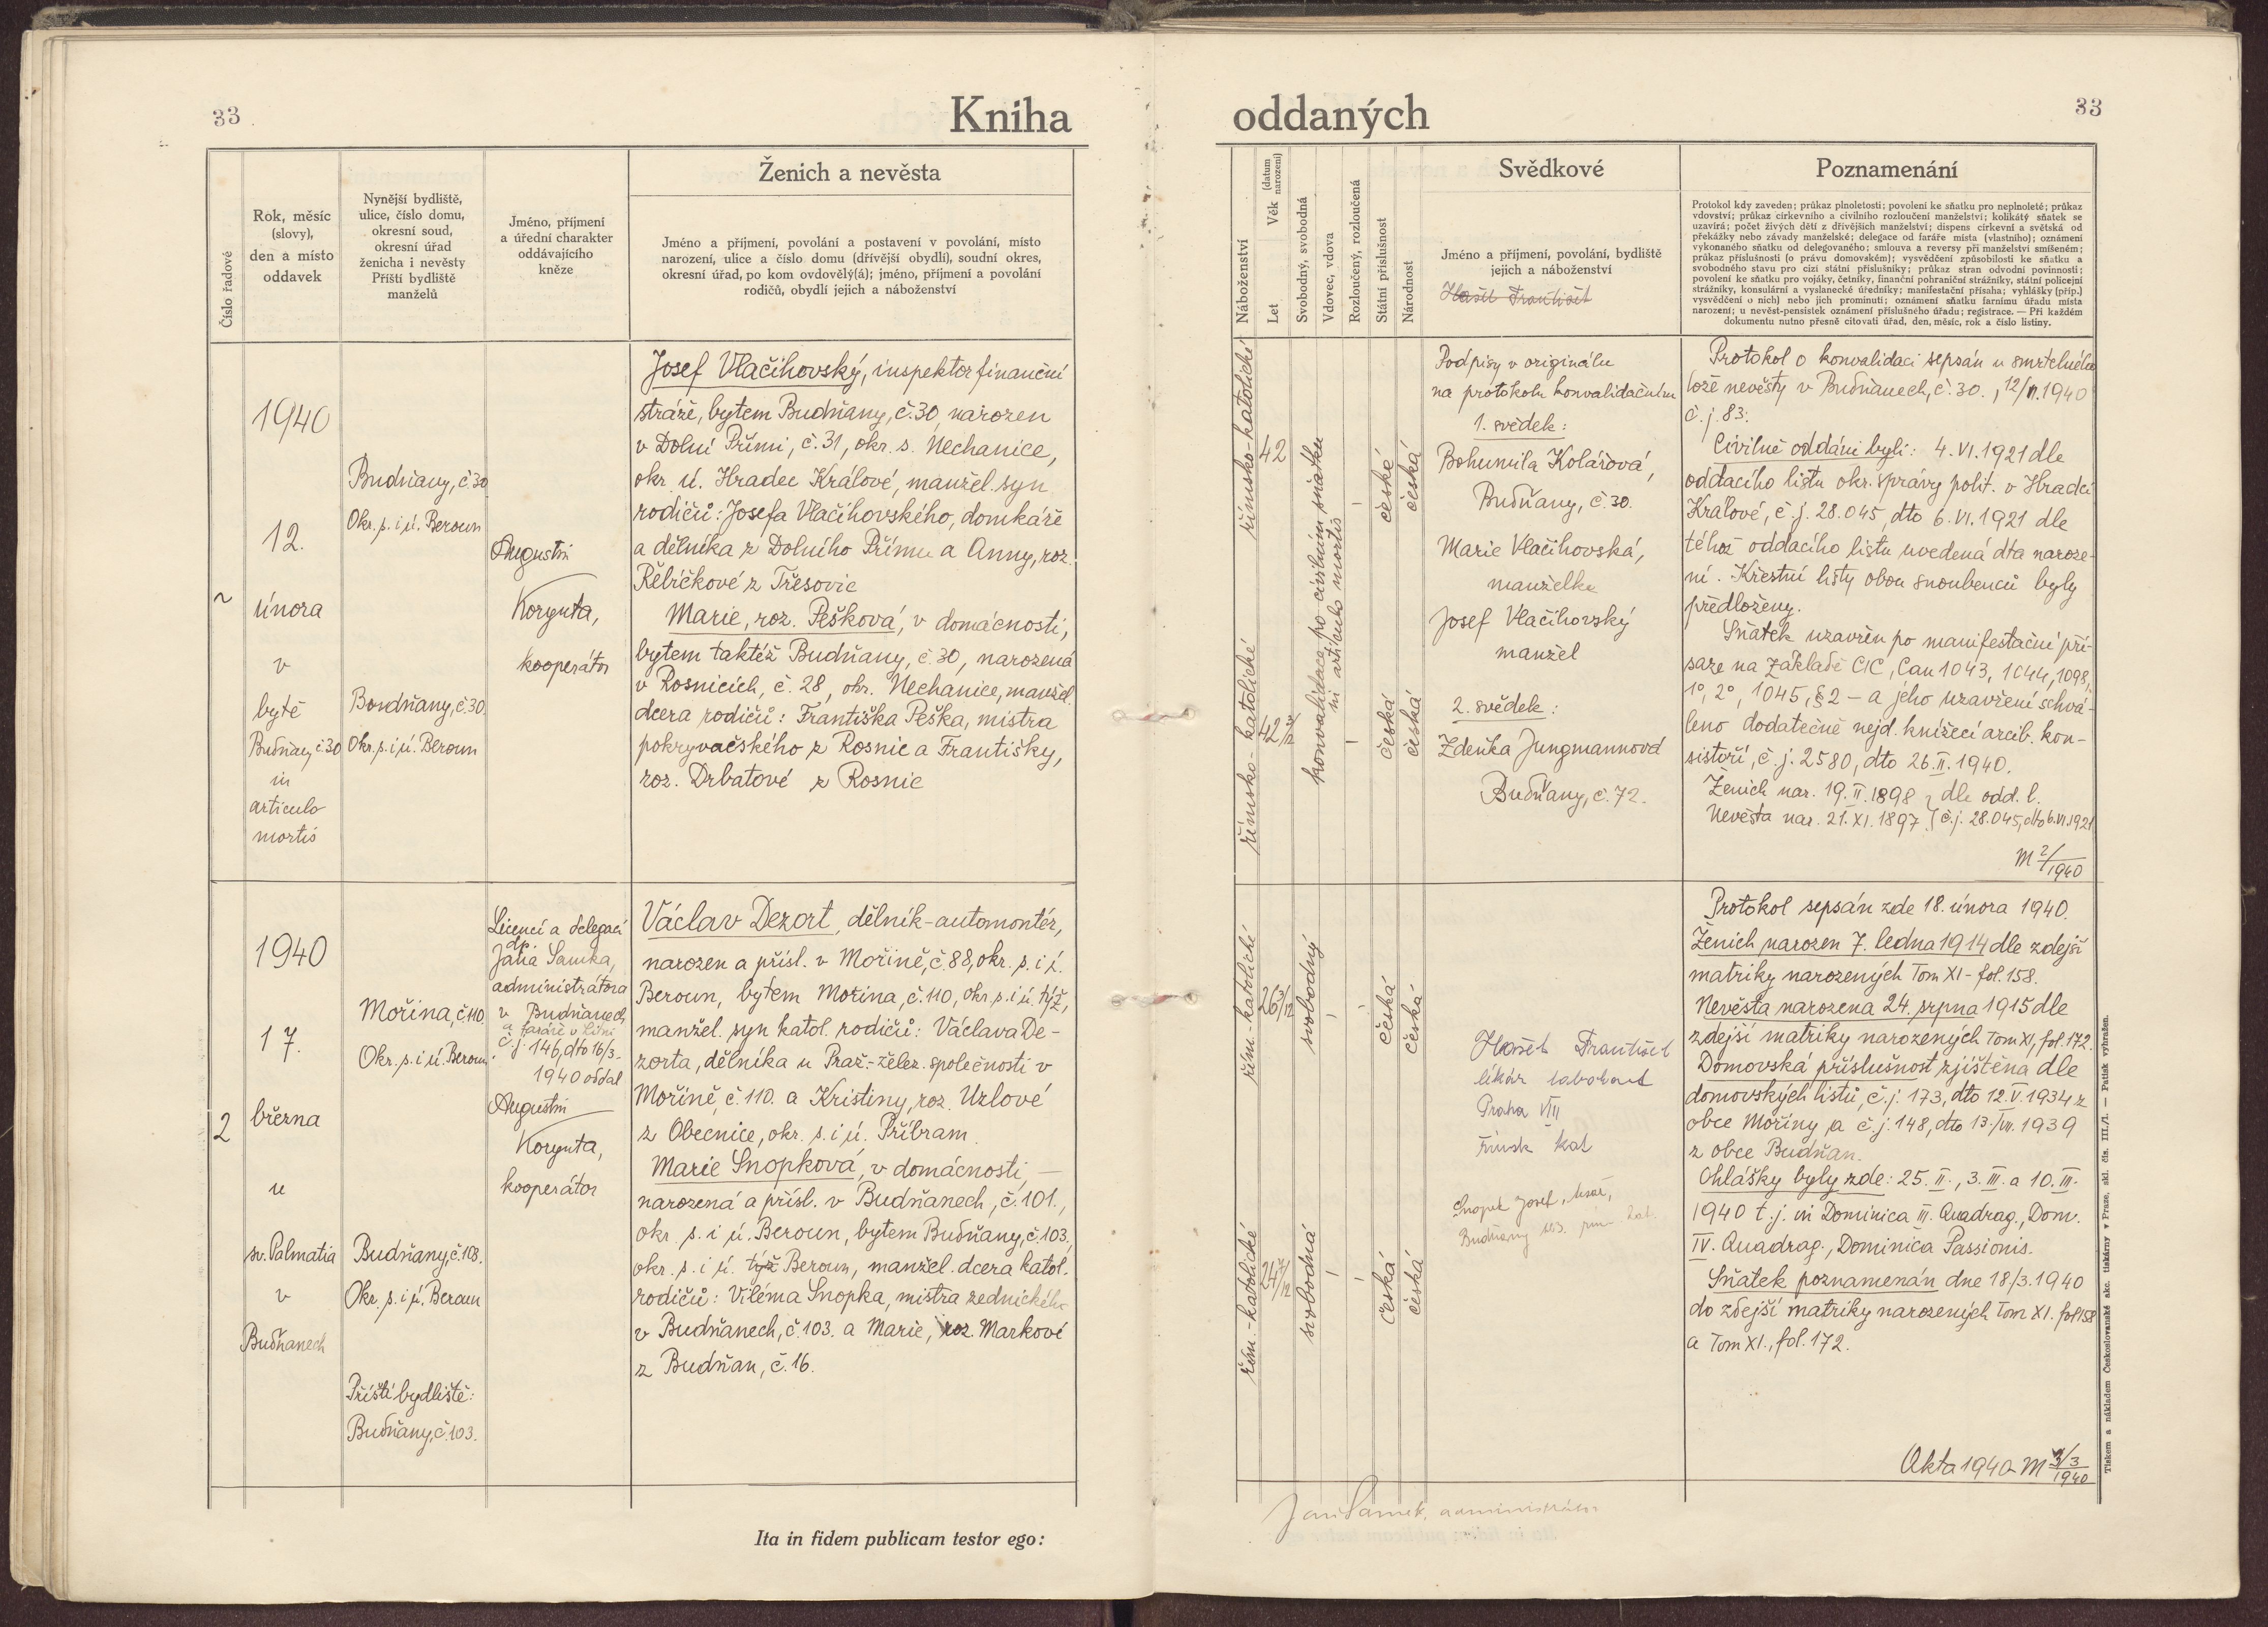 33
Kniha
Číslo řadové
Rok, měsíc
(slovy),
den a místo
oddavek
Nynější bydliště,
ulice, číslo domu,
okresní soud,
okresní úřad
ženicha i nevěsty
Příští bydliště
manželů
Jméno, příjmení
a úřední charakter
oddávajícího
kněze
Ženich a nevěsta
Jméno a příjmení, povolání a postavení v povolání, místo
narození, ulice a číslo domu (dřívější obydlí), soudní okres,
okresní úřad, po kom ovdověly(á); jméno, příjmení a povolání
rodičů, obydlí jejich a náboženství
1940
12.
února
v
bytě
Budňany, č. 30
in
articulo
mortis
Budňany, č. 30
Okr. s. i ú. Beroun
Budňany, č. 30.
Okr. s. i ú. Beroun
Augustin
Korynta,
kooperátor
Josef Vlačihovský, inspektor finanční
stráže, bytem Budňany, č. 30, narozen
v Dolní Přími, č. 31, okr. s. Nechanice,
okr. ú. Hradec Králové, manžel. syn
rodičů: Josefa Vlačihovského, domkáře
a dělníka z Dolního Přímu a Anny, roz.
Řebíčkové z Třesovic
Marie, roz. Pešková, v domácnosti,
bytem taktéž Budňany, č. 30, narozená
v Rosnicích, č. 28, okr. Nechanice, manžel.
dcera rodičů: Františka Peška, mistra
pokryvačského z Rosnic a Františky,
roz. Drbatové z Rosnic
2
1940
17.
března
u
sv. Palmatia
v
Budňanech
Mořina, č. 110
Okr. s. i ú. Beroun.
Budňany, č. 103.
Okr. s. i ú. Beroun
Příští bydliště:
Budňany, č. 103.
Licencí a delegací
dp.
Jana Samka,
administrátora
v Budňanech
a faráře v Litni
č. j. 146, dto 16/3-
1940 oddal
Augustin
Korynta,
kooperátor
Václav Dezort, dělník-automontér,
narozen a přísl. v Mořině, č. 88, okr. s. i ú.
Beroun, bytem Mořina, č. 110, okr. s. i ú. týž,
manžel. syn katol. rodičů: Václava De-
zorta, dělníka u Praž.-želez. společnosti v
Mořině, č. 110. a Kristiny, roz. Uzlové
z Obecnice, okr. s. i ú. Příbram.
Marie Snopková, v domácnosti, —
narozená a přísl. v Budňanech, č. 101.,
okr. s. i ú. Beroun, bytem Budňany, č. 103,
okr. s. i ú. týž Beroun, manžel. dcera katol.
rodičů: Viléma Snopka, mistra zednického
v Budňanech, č. 103. a Marie, roz. Markové
z Budňan, č. 16.
Ita in fidem publicam testor ego:
oddaných
33
Náboženství
Let Věk (datum narození)
Svobodný, svobodná
Vdovec, vdova
Rozloučený, rozloučená
Státní příslušnost
Národnost
Svědkové
Jméno a příjmení, povolání, bydliště
jejich a náboženství
Hašek František
Poznamenání
Protokol kdy zaveden; průkaz plnoletosti; povolení ke sňatku pro neplnoleté; průkaz
vdovství; průkaz církevního a civilního rozloučení manželství; kolikátý sňatek se
uzavírá; počet živých dětí z dřívějších manželství; dispens církevní a světská od
překážky nebo závady manželské; delegace od faráře místa (vlastního); oznámení
vykonaného sňatku od delegovaného; smlouva a reversy při manželství smíšeném;
průkaz příslušnosti (o právu domovském); vysvědčení způsobilosti ke sňatku a
svobodného stavu pro cizí státní příslušníky; průkaz stran odvodní povinnosti;
povolení ke sňatku pro vojáky, četníky, finanční pohraniční strážníky, státní policejní
strážníky, konsulární a vyslanecké úředníky; manifestační přísaha; vyhlášky (příp.)
vysvědčení o nich) nebo jich prominutí; oznámení sňatku farnímu úřadu místa
narození; u nevěst-pensistek oznámení příslušného úřadu; registrace. — Při každém
dokumentu nutno přesně citovati úřad, den, měsíc, rok a číslo listiny.
římsko-katolické
42
konvalidace po civilním sňatku
in articulo mortis
české
česká
římsko-katolické
česká
česká
Podpisy v originálu
na protokolu konvalidačním
1. svědek:
Bohumila Kolářová,
Budňany, č. 30.
Marie Vlačihovská,
manželka
Josef Vlačihovský
manžel
2. svědek:
Zdenka Jungmannová
Budňany, č. 72.
Protokol o konvalidaci sepsán u smrtelného
lože nevěsty v Budňanech, č. 30., 12/II. 1940
č. j. 83.
Civilně oddáni byli: 4. VI. 1921 dle
oddacího listu okr. správy polit. v Hradci
Králové, č. j. 28.045, dto 6. VI. 1921 dle
téhož oddacího listu uvedená dta naroze-
ní. Křestní listy obou snoubenců byly
předloženy.
Sňatek uzavřen po manifestační pří-
saze na základě CIC, Can 1043, 1044, 1098,
1°, 2°, 1045, § 2 – a jeho uzavření schvá-
leno dodatečně nejd. knížecí arcib. kon-
sistoří, č. j. 2580, dto 26. II. 1940.
Ženich nar. 19. II. 1898 } dle odd. l.
Nevěsta nar. 21. XI. 1897. } č. j. 28.045, dto 6. VI. 1921
M 2/1940
řím.-katolické
26
svobodný
česká
česká
řím.-katolické
24
svobodná
česká
česká
Hašek František
Praha VIII
římsk kat
Snopek Josef,
Budňany 103.
Protokol sepsán zde 18. února 1940.
Ženich narozen 7. ledna 1914 dle zdejší
matriky narozených Tom XI - fol. 158.
Nevěsta narozena 24. srpna 1915 dle
zdejší matriky narozených Tom XI, fol. 172.
Domovská příslušnost zjištěna dle
domovských listů, č. j. 173, dto 12. V. 1934 z
obce Mořiny a č. j. 148, dto 13./VII. 1939
z obce Budňan.
Ohlášky byly zde: 25. II., 3. III. a 10. III.
1940 t. j. in Dominica III. Quadrag., Dom.
IV. Quadrag., Dominica Passionis.
Sňatek poznamenán dne 18/3. 1940
do zdejší matriky narozených Tom XI. fol 158
a Tom XI., fol. 172.
Akta 1940 - M 3/1940
Jan Samek, administrátor
Tiskem a nákladem Československé akc. tiskárny v Praze, skl. čís. III./1. — Patisk vyhražen.